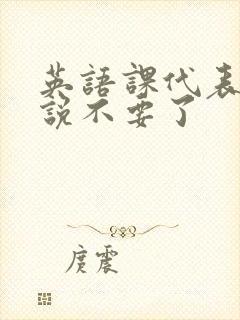 英語課代表
說不要了
庚震